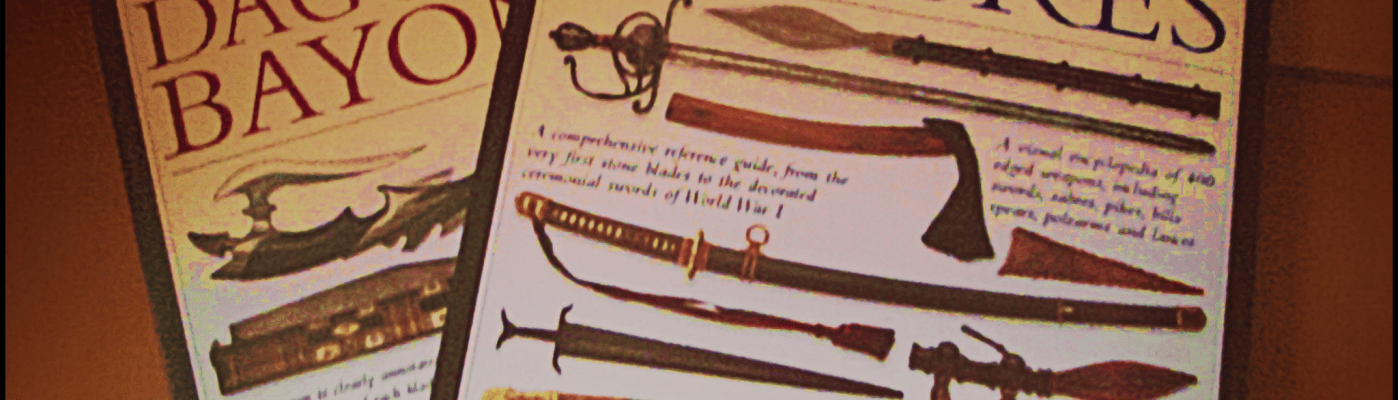 DAG
BAYO
RES
A comprehensive reference guide, from the
very first stone blades to the decorated
ceremonial swords of World War I
A visual encyclopedia of 400
edged weapons, including
swords, sabres, pikes, bills
spears, polearms and lances
is clearly